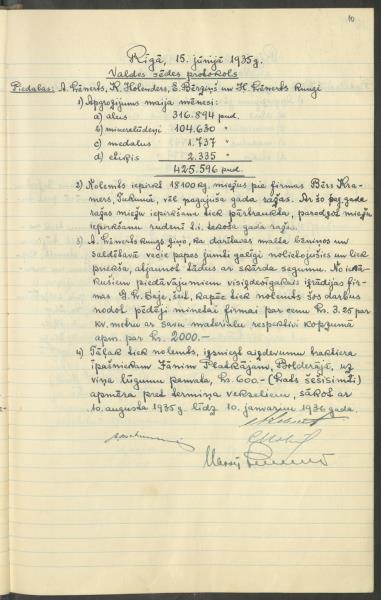 10
Rīgā, 15. jūnijā 1935 g.
Valdes sēdes protokols
Piedalās: A. Lānerts, K. Holenders, E. Bērziņš un H. Lānerts kungi
1) Apgrozījums maija mēnesī:
a) alus 316.894 pud.
b) minerālūdeņi 104.630 "
c) medalus 1.737 "
d) etiķis 2.335 "
425.596 pud.
2) Nolemts iepirkt 18100 kg. miežus pie firmas Bērs Kra-
mers, Tukumā, vēl pagājušā gada ražas. Ar šo
ražas miežu iepirkšana tiek pārtraukta, paredzot miežu
iepirkšanu rudenī t.i. tekošā gada ražas.
3) A. Lānerts kungs ziņo, ka darītavas malta bēniņos un
saldētavā vecie papes jumti galīgi nolietojušies un liek
priekšā, atjaunot tādus ar skārda segumu. No ienā-
kušiem piedāvājumiem visizdevīgākais izrādījās fir-
mas G. W. Beje, šeit, kāpēc tiek nolemts šos darbus
nodot pēdējai minētai firmai par cenu Ls. 3.25 par
kv. metru ar savu materiālu respektīvi kopsumā
apm. par Ls. 2000.—
4) Tālāk tiek nolemts, izsniegt aizdevumu traktiera
īpašniekam Jānim Platkājam, Bolderājā, uz
viņa lūguma pamata, Ls. 600.— (Lats sešisimti)
apmērā pret termiņa vekseļiem, sākot ar
10. augusta 1935 g. līdz 10. janvarim 1936 gada.